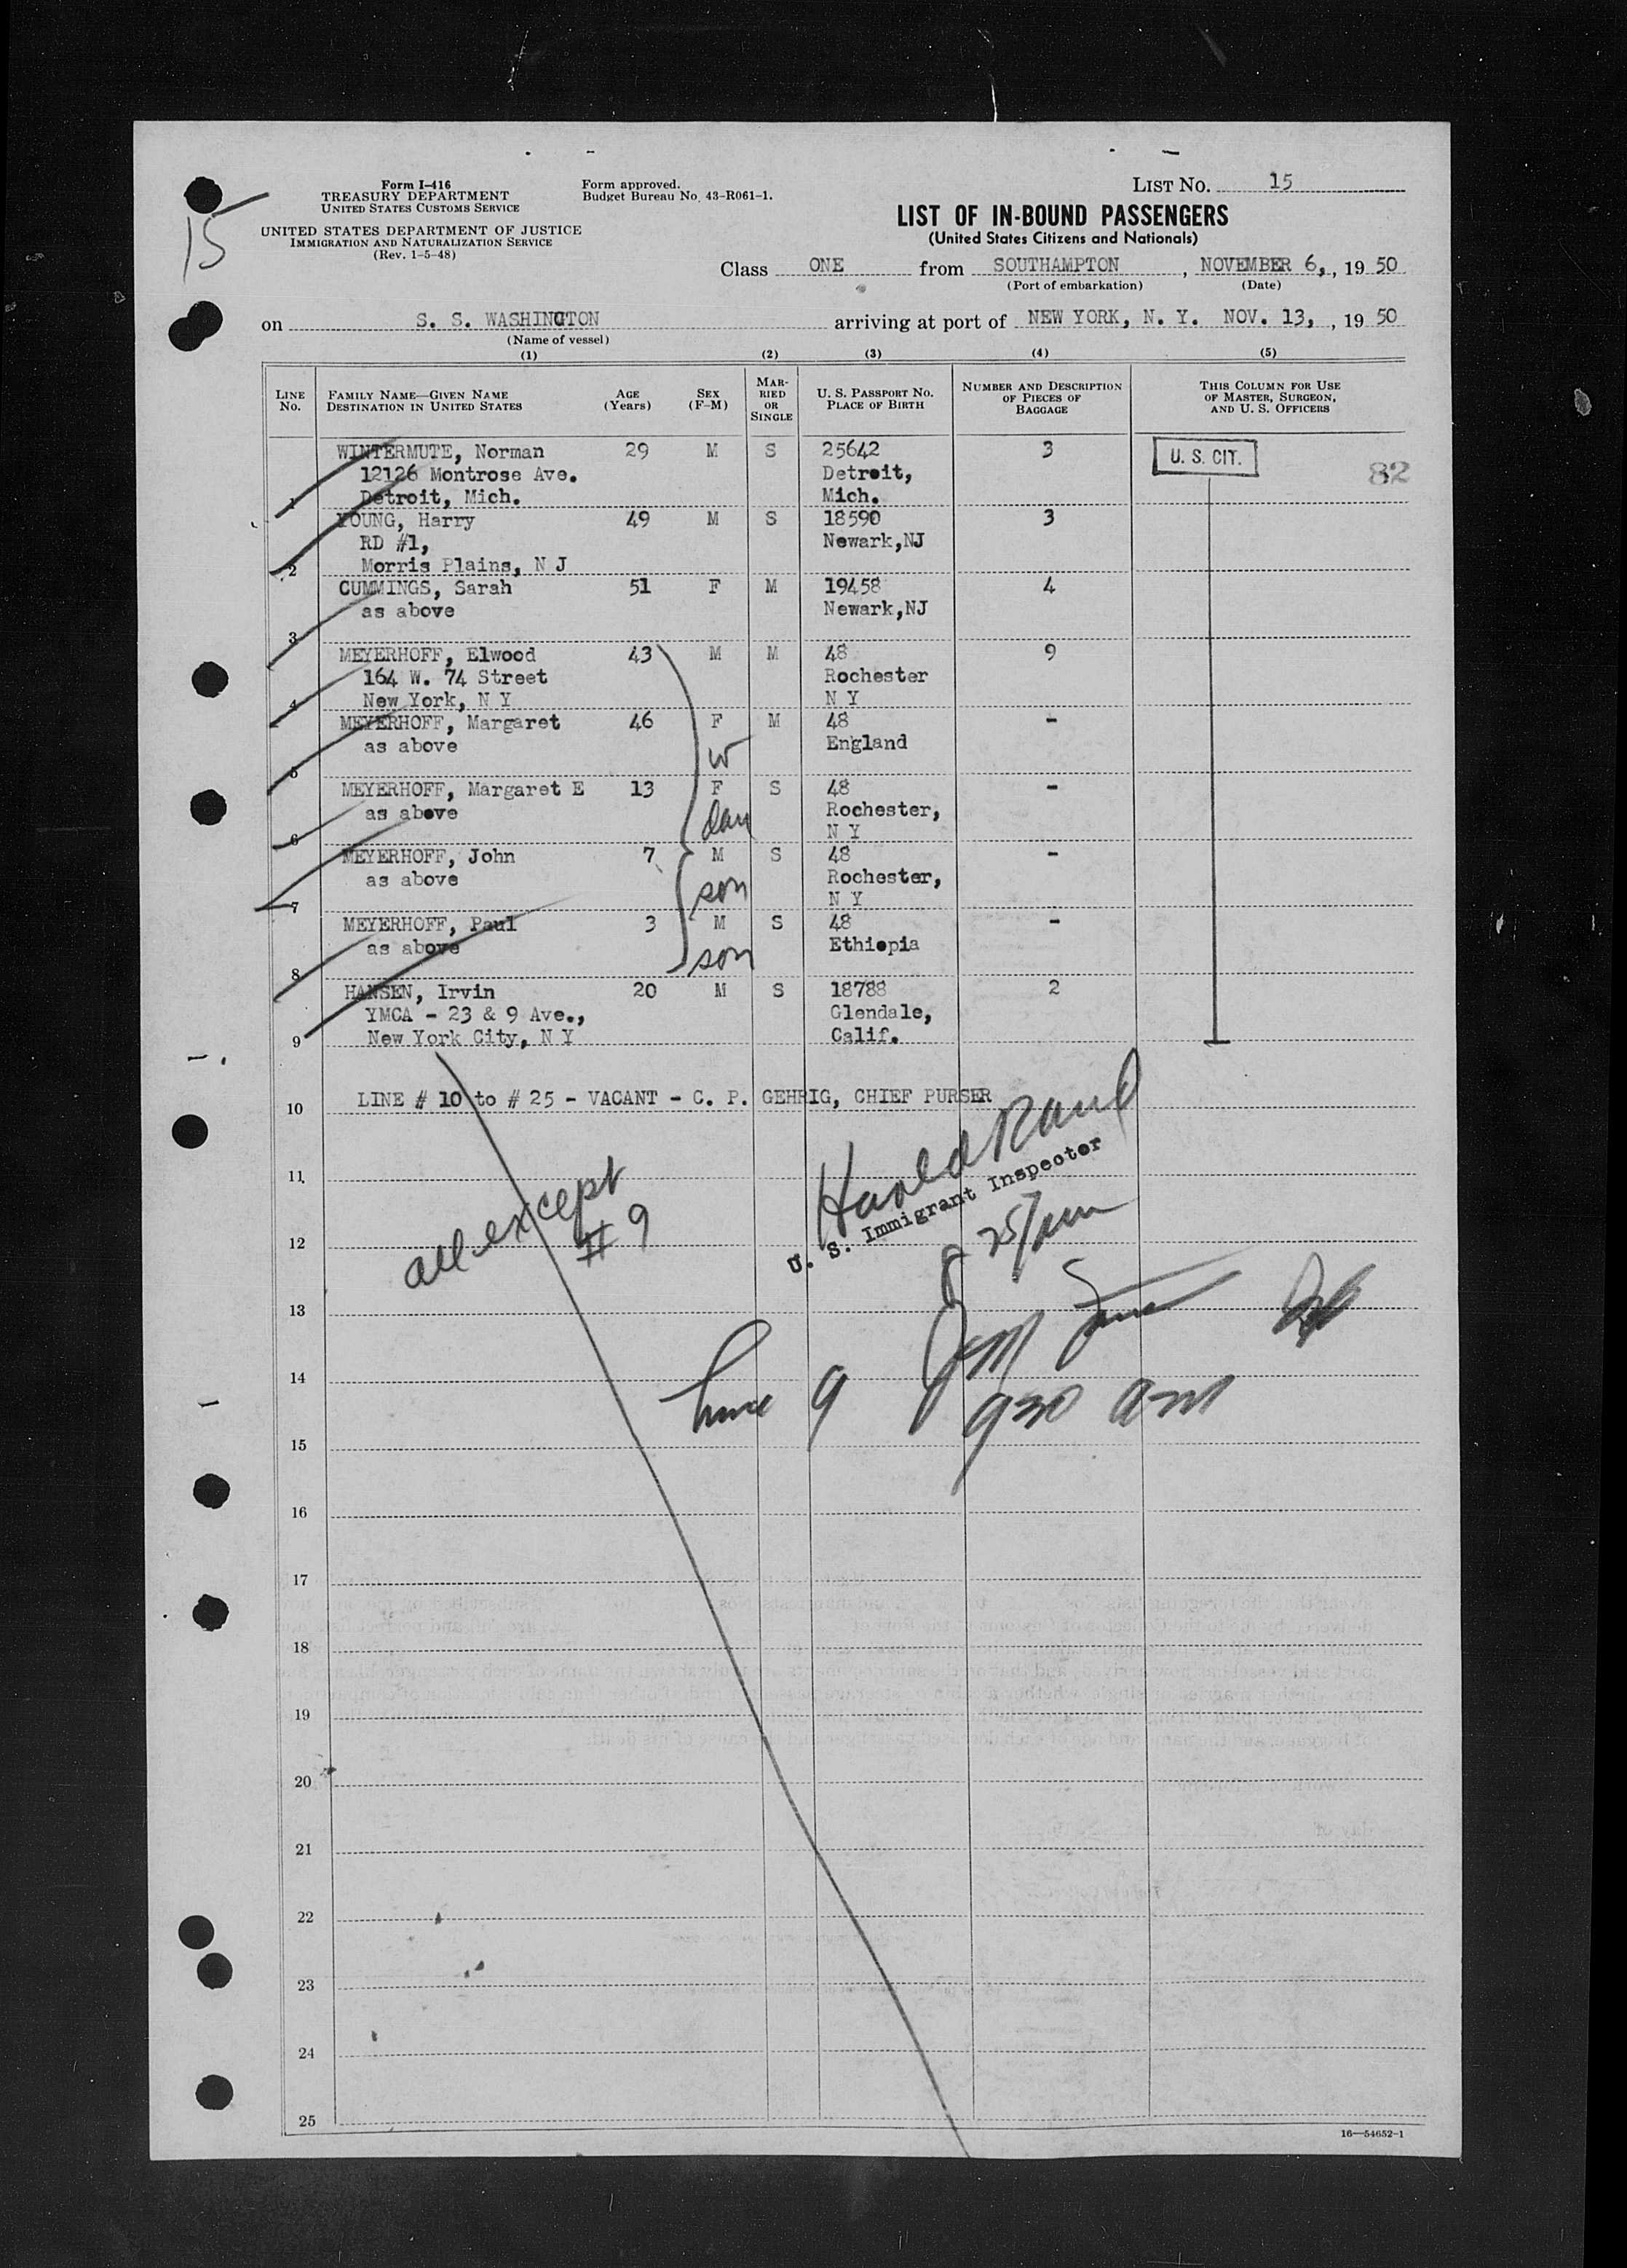 Form I-416
TREASURY DEPARTMENT
UNITED STATES CUSTOMS SERVICE
UNITED STATES DEPARTMENT OF JUSTICE
IMMIGRATION AND NATURALIZATION SERVICE
(Rev. 1-5-48)
Form approved.
Budget Bureau No. 43-R061-1.
15
LIST NO. 15
LIST OF IN-BOUND PASSENGERS
(United States Citizens and Nationals)
Class ONE from SOUTHAMPTON , NOVEMBER 6, , 19 50
(Port of embarkation) (Date)
on S. S. WASHINGTON arriving at port of NEW YORK, N. Y. NOV. 13, , 19 50
(Name of vessel)
(1) (2) (3) (4) (5)
LINE No.
FAMILY NAME—GIVEN NAME
DESTINATION IN UNITED STATES
AGE (Years)
SEX (F-M)
MARRIED OR SINGLE
U. S. PASSPORT NO.
PLACE OF BIRTH
NUMBER AND DESCRIPTION OF PIECES OF BAGGAGE
THIS COLUMN FOR USE OF MASTER, SURGEON, AND U. S. OFFICERS
WINTERMUTE, Norman 29 M S 25642 3 U. S. CIT.
12126 Montrose Ave. Detroit, 82
1 Detroit, Mich. Mich.
YOUNG, Harry 49 M S 18590 3
RD #1, Newark,NJ
2 Morris Plains, N J
CUMMINGS, Sarah 51 F M 19458 4
as above Newark,NJ
3
MEYERHOFF, Elwood 43 M M 48 9
164 W. 74 Street Rochester
4 New York, N Y N Y
MEYERHOFF, Margaret 46 F M 48 -
as above w England
5
MEYERHOFF, Margaret E 13 F S 48 -
as above dau Rochester,
6 N Y
MEYERHOFF, John 7 M S 48 -
as above son Rochester,
7 N Y
MEYERHOFF, Paul 3 M S 48 -
as above son Ethiopia
8
HANSEN, Irvin 20 M S 18788 2
YMCA - 23 & 9 Ave., Glendale,
9 New York City, N Y Calif.
10 LINE # 10 to # 25 - VACANT - C. P. GEHRIG, CHIEF PURSER
Harold
U. S. Immigrant Inspector
11
all except
# 9
12
13
14
9 930 am
15
16
17
18
19
20
21
22
23
24
25
16—54652-1